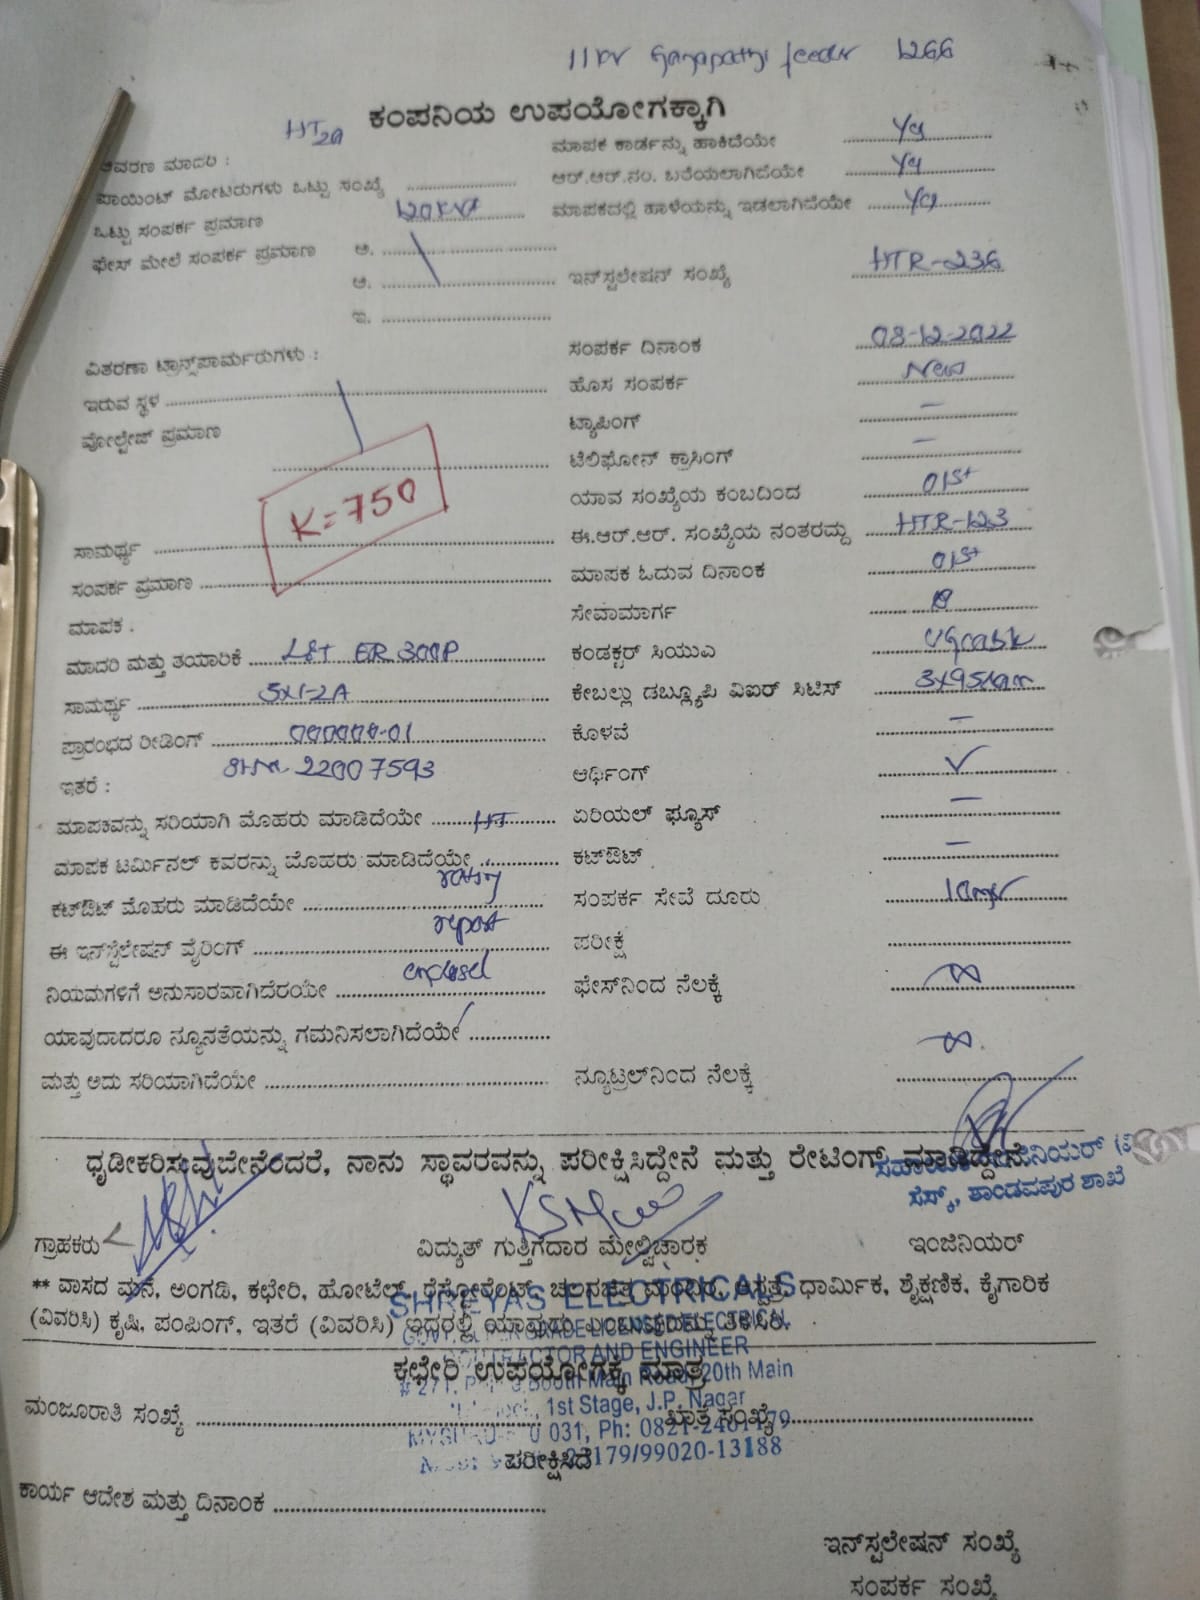 11kv Ganapathi feeder 1266
ಕಂಪನಿಯ ಉಪಯೋಗಕ್ಕಾಗಿ
HT2a
ಮಾಪಕ ಕಾರ್ಡನ್ನು ಹಾಕಿದೆಯೇ Yes
ಆವರಣ ಮಾದರಿ :
ಆರ್.ಆರ್.ನಂ. ಬರೆಯಲಾಗಿದೆಯೇ Yes
ಪಾಯಿಂಟ್ ಮೋಟರುಗಳು ಒಟ್ಟು ಸಂಖ್ಯೆ
ಮಾಪಕದಲ್ಲಿ ಹಾಳೆಯನ್ನು ಇಡಲಾಗಿದೆಯೇ Yes
ಒಟ್ಟು ಸಂಪರ್ಕ ಪ್ರಮಾಣ 120KVA
ಫೇಸ್ ಮೇಲೆ ಸಂಪರ್ಕ ಪ್ರಮಾಣ ಅ.
ಆ. ಇನ್‌ಸ್ಟಲೇಷನ್ ಸಂಖ್ಯೆ HTR-236
ಇ.
ವಿತರಣಾ ಟ್ರಾನ್ಸ್‌ಪಾರ್ಮರುಗಳು : ಸಂಪರ್ಕ ದಿನಾಂಕ 08-12-2022
ಇರುವ ಸ್ಥಳ ಹೊಸ ಸಂಪರ್ಕ New
ವೋಲ್ಟೇಜ್ ಪ್ರಮಾಣ ಟ್ಯಾಪಿಂಗ್ –
ಟೆಲಿಫೋನ್ ಕ್ರಾಸಿಂಗ್ –
K=750
ಯಾವ ಸಂಖ್ಯೆಯ ಕಂಬದಿಂದ 01st
ಸಾಮರ್ಥ್ಯ ಈ.ಆರ್.ಆರ್. ಸಂಖ್ಯೆಯ ನಂತರದ್ದು HTR-123
ಸಂಪರ್ಕ ಪ್ರಮಾಣ ಮಾಪಕ ಓದುವ ದಿನಾಂಕ 01st
ಮಾಪಕ . ಸೇವಾಮಾರ್ಗ
ಮಾದರಿ ಮತ್ತು ತಯಾರಿಕೆ L&T ER 300P ಕಂಡಕ್ಟರ್ ಸಿಯುಎ UGcable
ಸಾಮರ್ಥ್ಯ 5x1-2A ಕೇಬಲ್ಲು ಡಬ್ಲ್ಯೂಪಿ ವಿಐರ್ ಸಿಟಿಸ್ 3x95
ಪ್ರಾರಂಭದ ರೀಡಿಂಗ್ 000000-01 ಕೊಳವೆ –
ಇತರೆ : 22007593 ಆರ್ಥಿಂಗ್ ✓
ಮಾಪಕವನ್ನು ಸರಿಯಾಗಿ ಮೊಹರು ಮಾಡಿದೆಯೇ HT ಏರಿಯಲ್ ಫ್ಯೂಸ್ –
ಮಾಪಕ ಟರ್ಮಿನಲ್ ಕವರನ್ನು ಮೊಹರು ಮಾಡಿದೆಯೇ ಕಟ್‌ಔಟ್ –
ಕಟ್‌ಔಟ್ ಮೊಹರು ಮಾಡಿದೆಯೇ rating ಸಂಪರ್ಕ ಸೇವೆ ದೂರು 10mtr
ಈ ಇನ್‌ಸ್ಟಲೇಷನ್ ವೈರಿಂಗ್ report ಪರೀಕ್ಷೆ
ನಿಯಮಗಳಿಗೆ ಅನುಸಾರವಾಗಿದೆರಯೇ enclosed ಫೇಸ್‌ನಿಂದ ನೆಲಕ್ಕೆ ∞
ಯಾವುದಾದರೂ ನ್ಯೂನತೆಯನ್ನು ಗಮನಿಸಲಾಗಿದೆಯೇ
ಮತ್ತು ಅದು ಸರಿಯಾಗಿದೆಯೇ ನ್ಯೂಟ್ರಲ್‌ನಿಂದ ನೆಲಕ್ಕೆ ∞.
ಧೃಡೀಕರಿಸುವುದೇನೆಂದರೆ, ನಾನು ಸ್ಥಾವರವನ್ನು ಪರೀಕ್ಷಿಸಿದ್ದೇನೆ ಮತ್ತು ರೇಟಿಂಗ್ ಮಾಡಿದ್ದೇನೆ
ಸೆಸ್ಕ್, ಪಾಂಡವಪುರ ಶಾಖೆ
ಗ್ರಾಹಕರು ವಿದ್ಯುತ್ ಗುತ್ತಿಗೆದಾರ ಮೇಲ್ವಿಚಾರಕ ಇಂಜಿನಿಯರ್
** ವಾಸದ ಮನೆ, ಅಂಗಡಿ, ಕಛೇರಿ, ಹೋಟೆಲ್, ರೆಸ್ಟೋರೆಂಟ್, ಚಲನಚಿತ್ರ ಮಂದಿರ, ಆಸ್ಪತ್ರೆ, ಧಾರ್ಮಿಕ, ಶೈಕ್ಷಣಿಕ, ಕೈಗಾರಿಕ
SHREYAS ELECTRICALS
(ವಿವರಿಸಿ) ಕೃಷಿ, ಪಂಪಿಂಗ್, ಇತರೆ (ವಿವರಿಸಿ) ಇದರಲ್ಲಿ ಯಾವುದು ಎಂಬುವುದನ್ನು ತಿಳಿಸಿರಿ.
LICENSED ELECTRICAL
CONTRACTOR AND ENGINEER
ಕಛೇರಿ ಉಪಯೋಗಕ್ಕೆ ಮಾತ್ರ
# 271, Main Road, 20th Main
1st Stage, J.P. Nagar
ಮಂಜೂರಾತಿ ಸಂಖ್ಯೆ ಖಾತೆ ಸಂಖ್ಯೆ
031, Ph: 0821-2401179
ಪರೀಕ್ಷಿಸಿದೆ
/99020-13188
ಕಾರ್ಯ ಆದೇಶ ಮತ್ತು ದಿನಾಂಕ
ಇನ್‌ಸ್ಟಲೇಷನ್ ಸಂಖ್ಯೆ
ಸಂಪರ್ಕ ಸಂಖ್ಯೆ